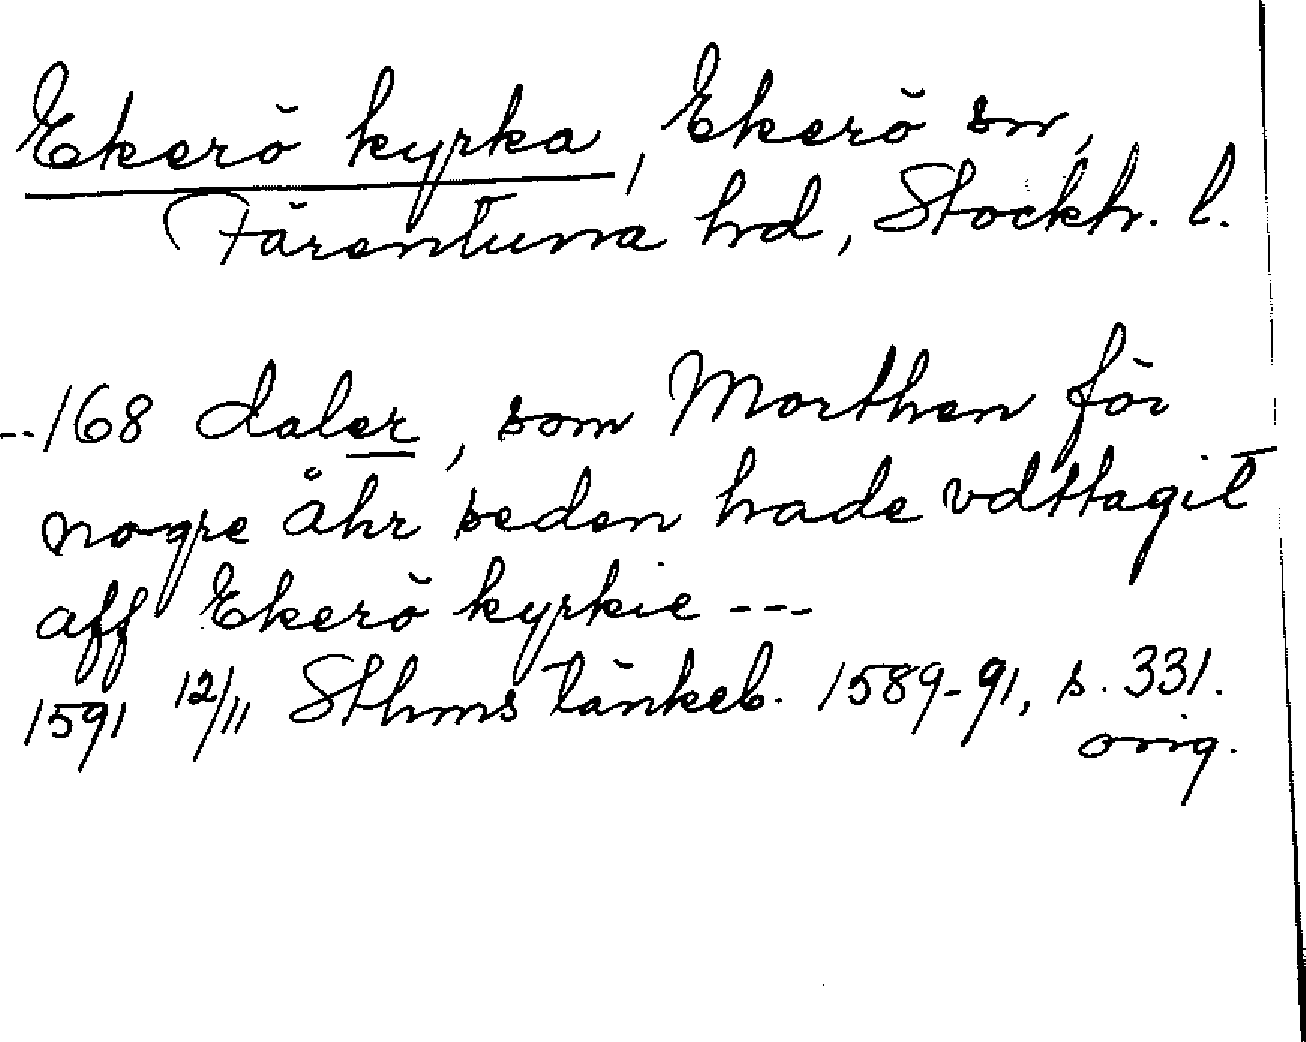 Ekerö kyrka, Ekerö sn,
Färentuna hd, Stockh. l.
--168 daler, som Morthen för
nogre åhr seden hade vdttagit
aff Ekerö kyrkie ---
1591 12/11 Sthms tänkeb. 1589-91, s. 331.
orig.